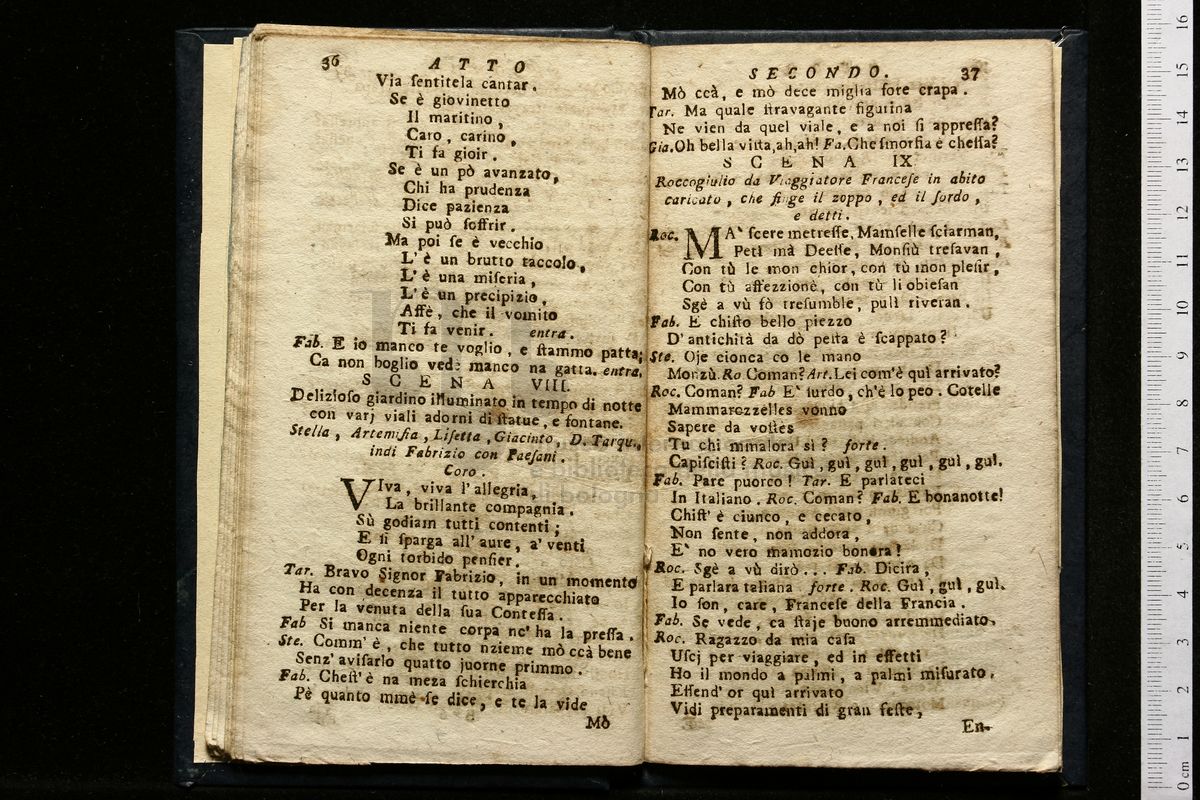 36 ATTO
Via ſentitela cantar.
Se è giovinetto
Il maritino,
Caro, carino,
Ti fa gioir.
Se è un pò avanzato,
Chi ha prudenza
Dice pazienza
Si può ſoffrir.
Ma poi ſe è vecchio
L' è un brutto taccolo,
L' è una miſeria,
L' è un precipizio,
Affè, che il vomito
Ti fa venir. entra.
Fab. E io manco te voglio, e ſtammo patta;
Ca non boglio vedè manco na gatta. entra.
SCENA VIII.
Delizioſo giardino illuminato in tempo di notte
con varj viali adorni di ſtatue, e fontane.
Stella, Artemiſia, Liſetta, Giacinto, D. Tarqu.,
indi Fabrizio con Paeſani.
Coro.
VIva, viva l' allegria,
La brillante compagnia.
Sù godiam tutti contenti;
E ſi ſparga all' aure, a' venti
Ogni torbido penſier.
Tar. Bravo Signor Fabrizio, in un momento
Ha con decenza il tutto apparecchiato
Per la venuta della ſua Conteſſa.
Fab Si manca niente corpa ne' ha la preſſa.
Ste. Comm' è, che tutto nzieme mò ccà bene
Senz' aviſarlo quatto juorne primmo.
Fab. Cheſt' è na meza ſchierchia
Pè quanto mmè ſe dice, e te la vide
Mò
SECONDO. 37
Mò ccà, e mò dece miglia fore crapa.
Tar. Ma quale ſtravagante figurina
Ne vien da quel viale, e a noi ſi appreſſa?
Gia. Oh bella viſta, ah, ah! Fa. Che ſmorfia è cheſſa?
SCENA IX.
Roccogiulio da Viaggiatore Franceſe in abito
caricato, che finge il zoppo, ed il ſordo,
e detti.
Roc. MA' ſcere metreſſe, Mamſelle ſciarman,
Petì mà Deeſſe, Monſiù treſavan,
Con tù le mon chior, con tù mon pleſir,
Con tù affezzionè, con tù li obieſan
Sgè a vù fò treſumble, pulì riveran.
Fab. E chiſto bello piezzo
D' antichità da dò peſta è ſcappato?
Ste. Oje cionca co le mano
Monzù. Ro Coman? Art. Lei com'è quì arrivato?
Roc. Coman? Fab E' ſurdo, ch'è lo peo. Cotelle
Mammarozzelles vonno
Sapere da volles
Tu chi mmalora sì? forte.
Capiſciſti? Roc. Guì, guì, guì, guì, guì, guì.
Fab. Pare puorco! Tar. E parlateci
In Italiano. Roc. Coman? Fab. E bonanotte!
Chiſt' è ciunco, e cecato,
Non ſente, non addora,
E' no vero mamozio bonora!
Roc. Sgè a vù dirò... Fab. Dicira,
E parlara taliana forte. Roc. Guì, guì, guì.
Io ſon, care, Franceſe della Francia.
Fab. Se vede, ca ſtaje buono arremmediato.
Roc. Ragazzo da mia caſa
Uſcj per viaggiare, ed in effetti
Ho il mondo a palmi, a palmi miſurato.
Eſſend' or quì arrivato
Vidi preparamenti di gran feſte,
En-